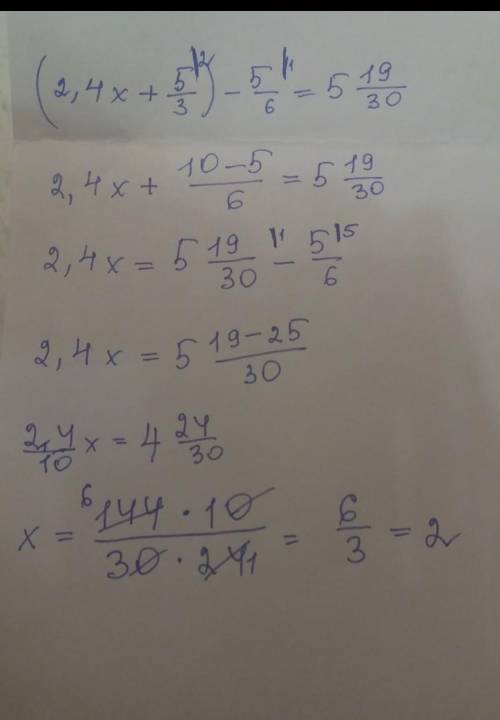 (2,4x + 5/3|2) - 5/6|1 = 5 19/30
2,4x + (10-5)/6 = 5 19/30
2,4x = 5 19/30|1 - 5/6|5
2,4x = 5 (19-25)/30
2,4/10 x = 4 24/30
x = 6 144 · 10 / 30 · 24 1 = 6/3 = 2